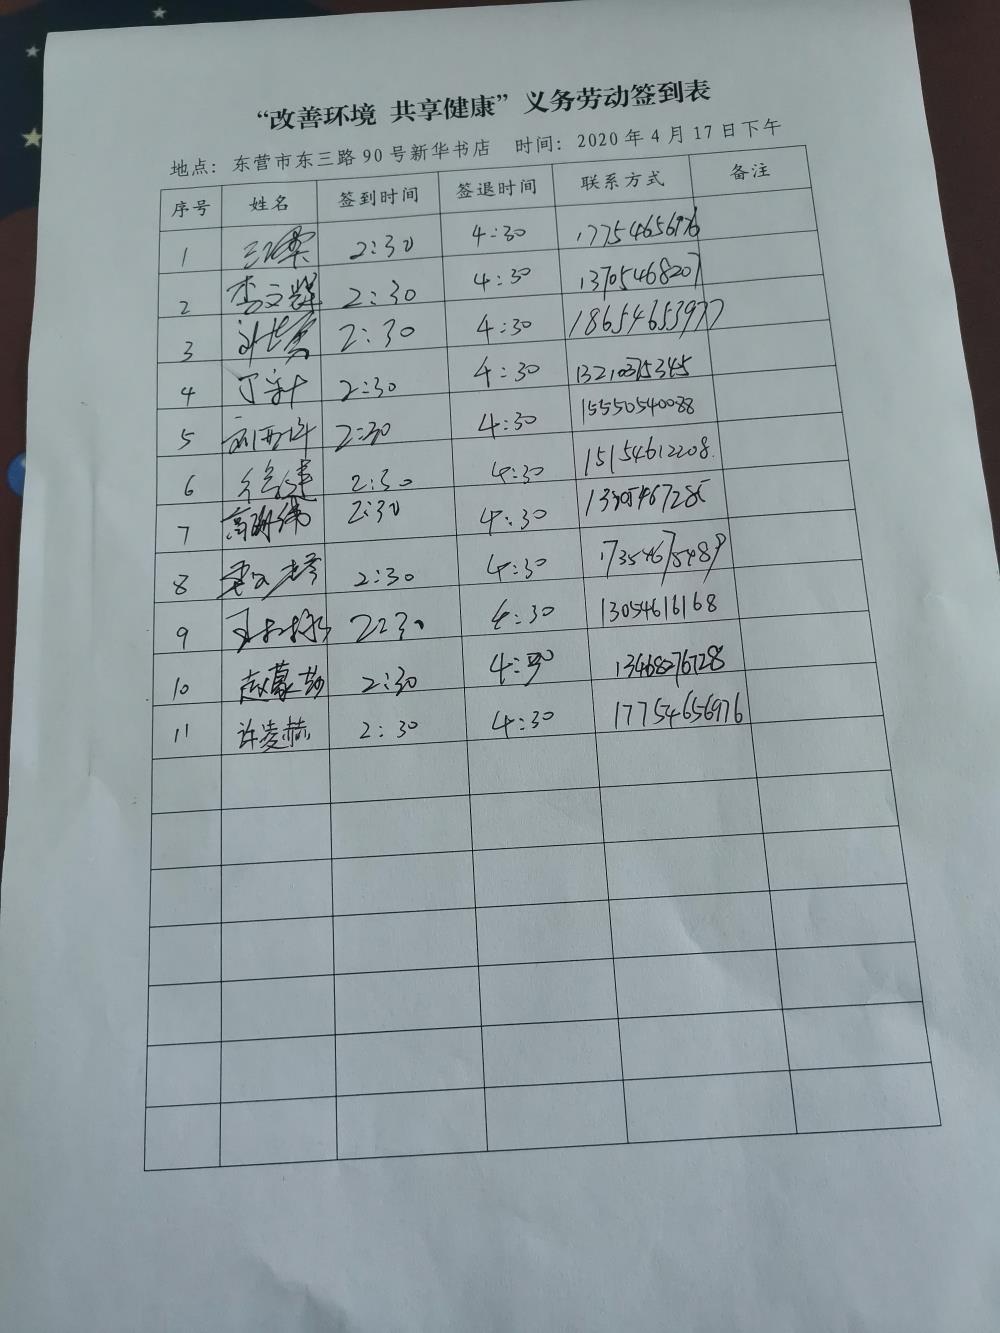 “改善环境 共享健康”义务劳动签到表
地点：东营市东三路90号新华书店 时间：2020年4月17日下午
序号 姓名 签到时间 签退时间 联系方式 备注
1 2:30 4:30 17754656976
2 李文辉 2:30 4:30 13705468207
3 2:30 4:30 18654653977
4 2:30 4:30 13210375345
5 2:30 4:30 15550540088
6 徐建 2:30 4:30 15154612208.
7 2:30 4:30
8 2:30 4:30 17354675489
9 2:30 4:30 13054616168
10 赵蒙 2:30 4:30 13468276728
11 许凌赫 2:30 4:30 17754656976